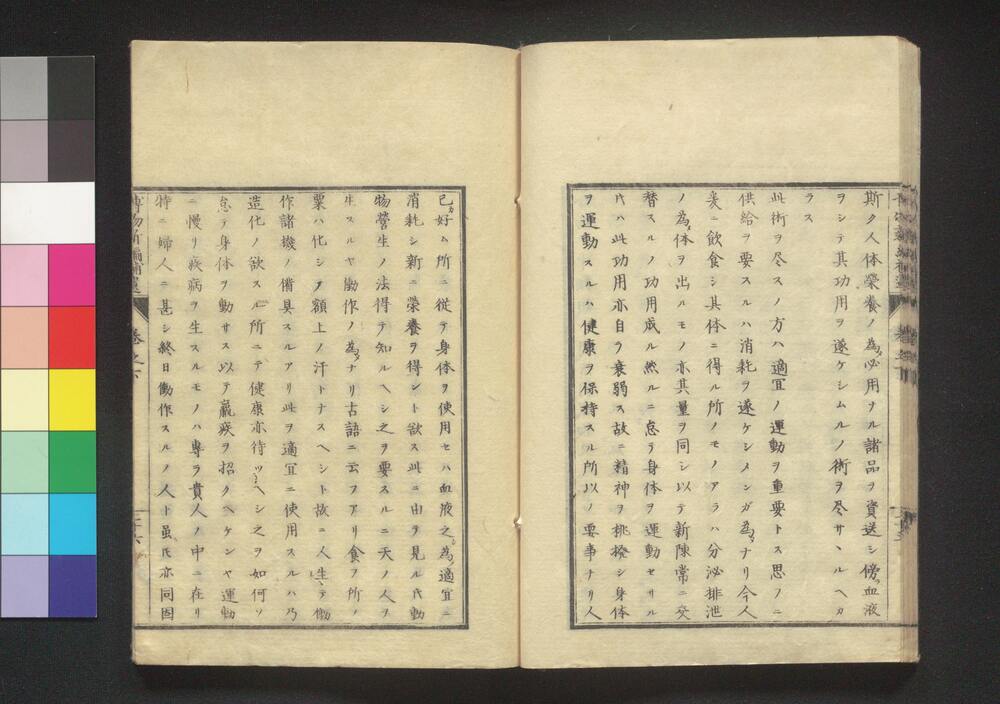 斯ク人体榮養ノ為必用ナル諸品ヲ資送シ傍血液
ヲシテ其功用ヲ遂ケシムルノ術ヲ尽サヽルヘカ
ラス
此術ヲ尽スノ方ハ適宜ノ運動ヲ重要トス思フニ
供給ヲ要スルハ消耗ヲ遂ケシメンガ為ナリ今人
爰ニ飲食シ其体ニ得ル所ノモノアラハ分泌排泄
ノ為体ヲ出ルモノ亦其量ヲ同シ以テ新陳常ニ交
替スルノ功用成ル然ルニ怠ラ身体ヲ運動セサル
氏ハ此功用亦自ラ衰弱ス故ニ精神ヲ挑撥シ身体
ヲ運動スルハ健康ヲ保持スル所以ノ要事ナリ人
己カ好ム所ニ従テ身体ヲ使用セハ血液之カ為適宜ニ
消耗シ新ニ榮養ヲ得ント欲ス此ニ由ヲ見ル氏動
物營生ノ法得テ知ルヘシ之ヲ要スルニ天ノ人ヲ
生スルヤ働作ノ為ナリ古語ニ云フアリ食フ所ノ
粟ハ化シテ額上ノ汗トナスヘシト故ニ人生テ働
作諸機ノ備具スルアリ此ヲ適宜ニ使用スルハ乃
造化ノ欲スル所ニテ健康亦待ツヘシ之ヲ如何ソ
怠テ身体ヲ動サス以テ羸疾ヲ招クヘケンヤ運動
ニ慢リ疾病ヲ生スルモノハ専ラ貴人ノ中ニ在リ
特ニ婦人ニ甚シ終日働作スルノ人ト虽氏亦同固
卷之下